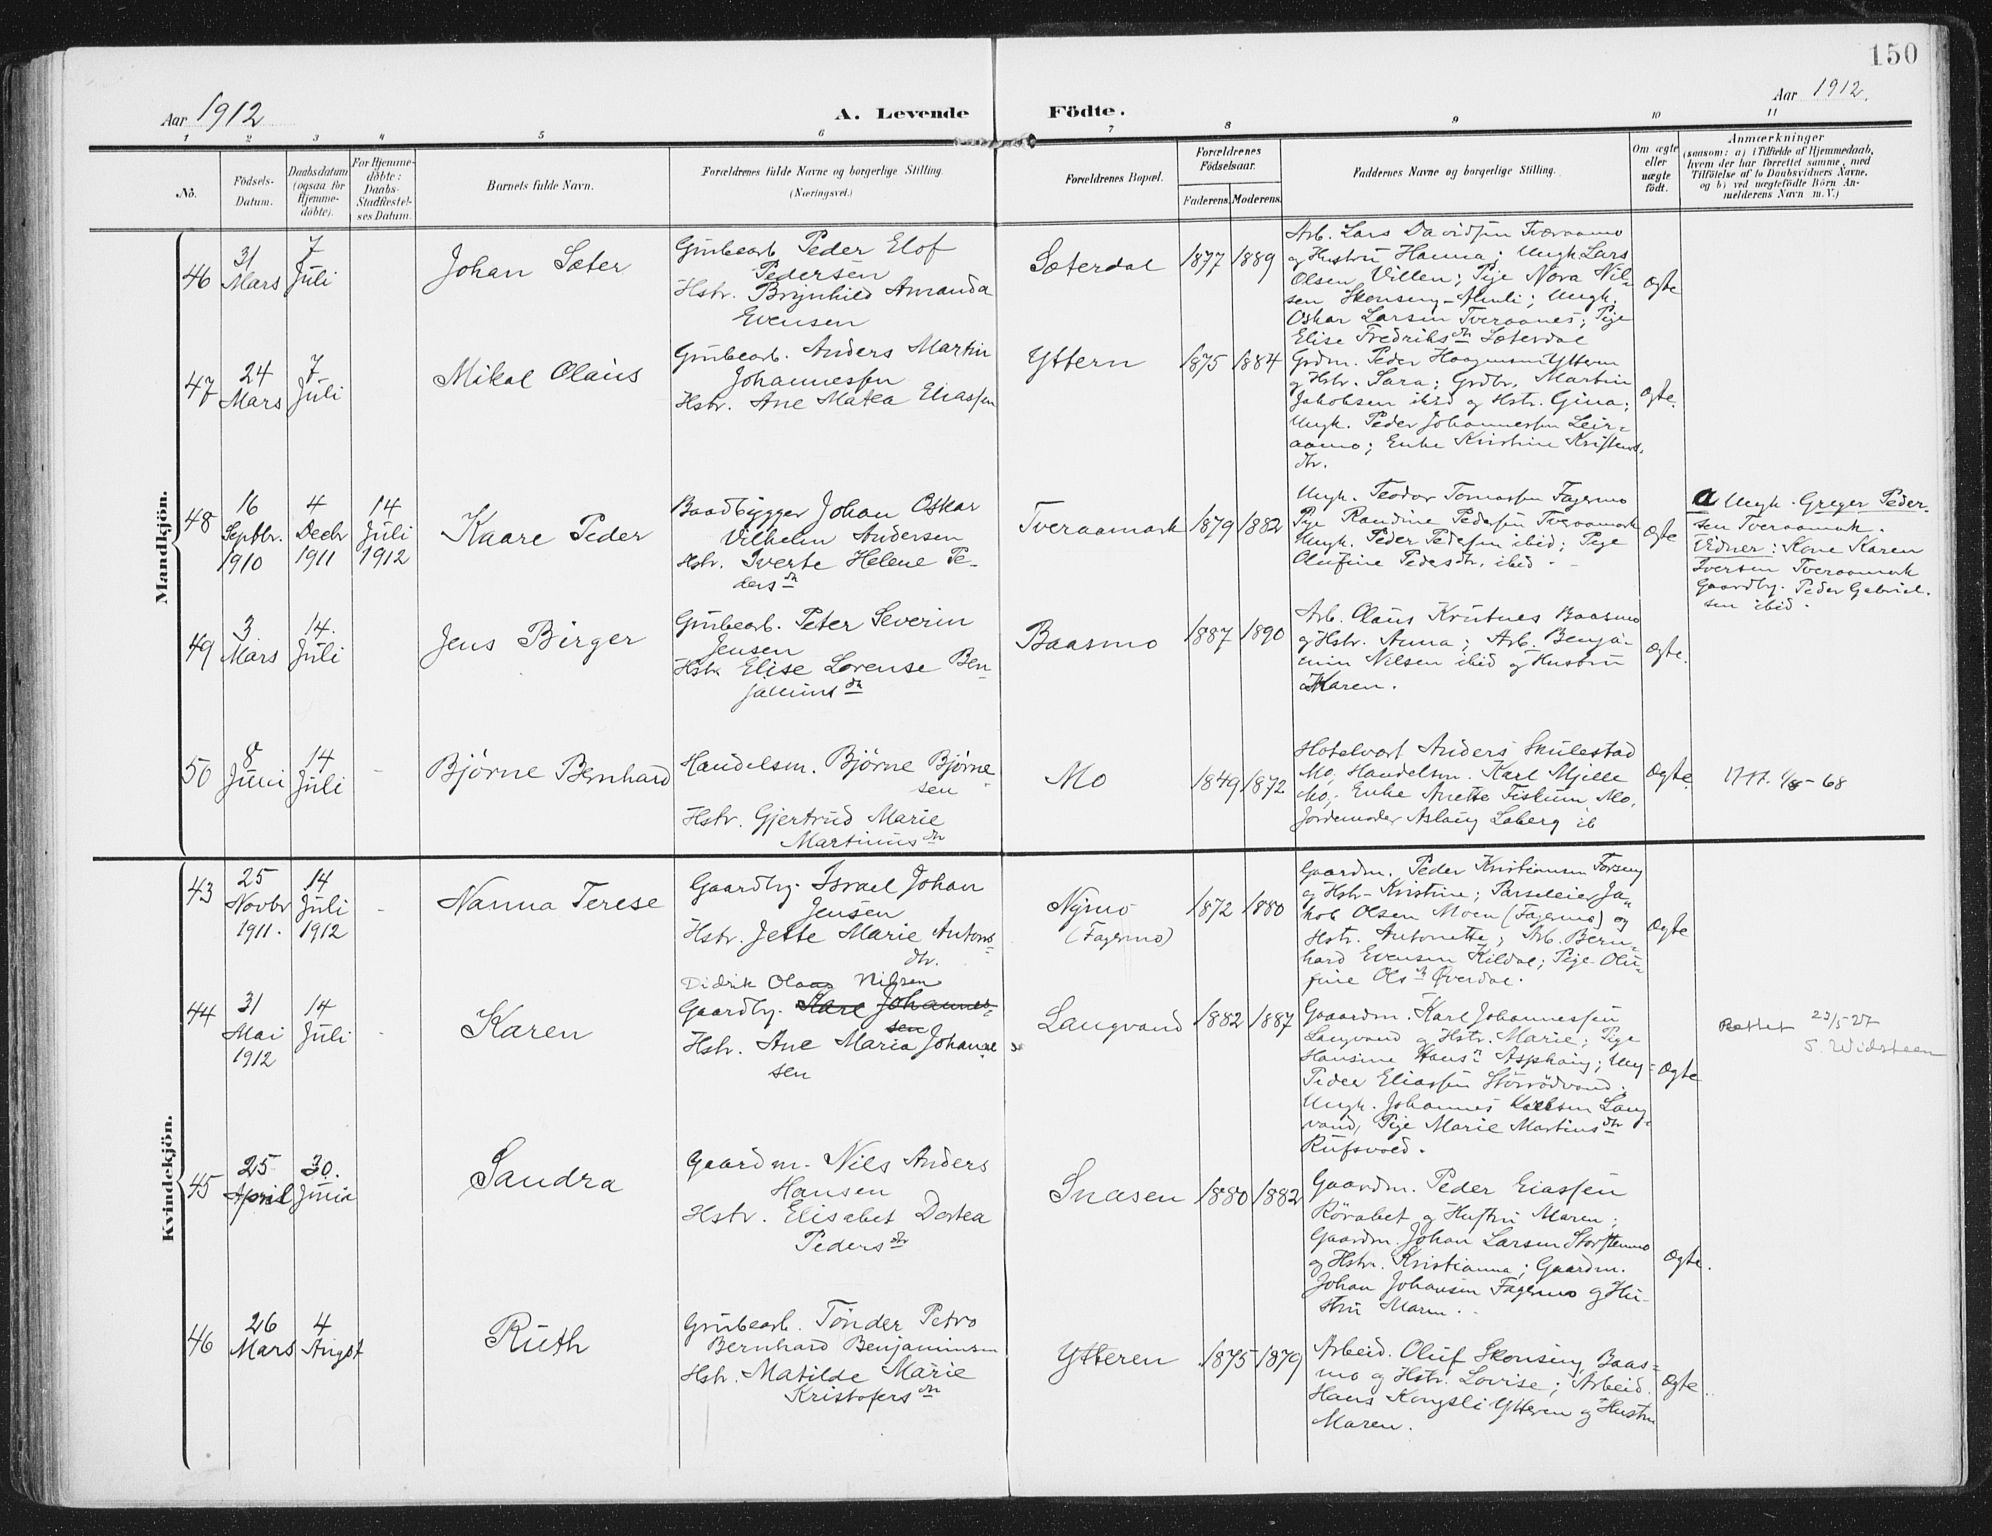 150
Aar 1912
A. Levende Födte.
Aar 1912.
1 2 3 4 5 6 7 8 9 10 11
No.
Födsels-
Datum.
Daabsdatum
(ogsaa for
Hjemme-
döbte).
For Hjemme-
döbte:
Daabs-
Stadfæstel-
ses Datum.
Barnets fulde Navn.
Forældrenes fulde Navne og borgerlige Stilling.
(Næringsvei.)
Forældrenes Bopæl.
Forældrenes
Födselsaar.
Faderens. Moderens.
Faddernes Navne og borgerlige Stilling.
Om ægte
eller
uægte
födt.
Anmærkninger
(saasom: a) i Tilfælde af Hjemmedaab,
hvem der har forrettet samme, med
Tilföielse af to Daabsvidners Navne,
og b) ved uægtefödte Börn An-
melderens Navn m. V.)
Mandkjön.
46
31
Mars
7
Juli
Johan Sæter
Grubearb. Peder Elof
Pedersen
Hstr. Brynhild Amanda
Evensen
Sæterdal
1877 1889
Arb. Lars Davidsen Tveraamo
og Hustru Hanna; Ungk Lars
Olsen Villen; Pige Nora Nil-
sen Skonseng-Almli; Ungk.
Oskar Larsen Tveraanes; Pige
Elise Fredriksdtr Sæterdal
Ægte
47
24
Mars
7
Juli
Mikal Olaus
Grubearb. Anders Martin
Johannessen
Hstr. Ane Matea Eliassen
Yttern
1875 1884
Grdm. Peder Haagensen Yttern
og Hstr. Sara; Grdbr. Martin
Jakobsen ibid og Hstr. Gina;
Ungk. Peder Johannessen Leir-
aamo; Enke Kristine Kristens
dtr.
Ægte.
48
16
Septbr.
1910
4
Decbr
1911
14
Juli
1912
Kaare Peder
Baadbygger Johan Oskar
Vilhelm Andersen
Hstr. Iverte Helene Pe-
dersdtr
Tveraamark
1879 1882
Ungk. Teodor Tomassen Fagermo
Pige Randine Pedersen Tveraamark
Ungk. Peder Pedersen ibid; Pige
Olufine Pedersdtr. ibid.
Ægte
a Ungk. Greger Peder-
sen Tveraamark.
Vidner: Kone Karen
Iversen Tveraamark
Gaardbr. Peder Gabriel-
sen ibid.
49
3
Mars
14.
Juli
Jens Birger
Grubearb. Peter Severin
Jensen
Hstr Elise Lorense Ben-
jaminsdtr
Baasmo
1887 1890
Arb. Olaus Krutnes Baasmo
og Hstr. Anna; Arb. Benja-
min Nilsen ibid og Hustru
Karen.
Ægte.
50
8
Juni
14
Juli
-
Bjørne Bernhard
Handelsm. Bjørne Bjørne-
sen
Hstr. Gjertrud Marie
Martinusdtr
Mo
1849 1872
Hotelvært Anders Skulestad
Mo, Handelsm. Karl Mjelle
Mo, Enke Anette Fiskum, Mo,
Jordemoder Aslaug Laberg ib
Ægte.
Kvindekjön.
43
25
Novbr
1911.
14
Juli
1912
-
Nanna Terese
Gaardbr. Israel Johan
Jensen
Hstr. Jette Marie Antons-
dtr.
Nymo
(Fagermo)
1872 1880
Gaardm. Peder Kristiansen Forseng
og Hstr Kristine; Parseleier Ja-
kob Olsen Moen (Fagermo) og
Hstr. Antonette; Arb. Bern-
hard Evensen Kildal; Pige Olu-
fine Olsdtr Øverdal.
Ægte
44
31
Mai
1912
14
Juli
Karen
Didrik Olaus Nilsen
Gaardbr. Karl Johannes-
sen
Hstr. Ane Maria Johannes-
sen
Langvand
1882 1887
Gaardm. Karl Johannessen
Langvand og Hstr. Marie; Pige
Hansine Hansn Asphaug; Ung-
Peder Eliassen Storrödvand;
Ungk. Johannes Karlsen Lang-
vand, Pige Marie Martinsdtr
Rufsvold.
Ægte
Rettet 23/5-27
S. Widsteen
45
25
April
30.
Juni
Sandra
Gaardm. Nils Anders
Hansen
Hstr. Elisabet Dortea
Pedersdtr
Snasen
1880 1882
Gaardm. Peder Eliassen
Rörabet og Hustru Maren;
Gaardm. Johan Larsen Storstenmo
og Hstr. Kristianna; Gaardm.
Johan Johansen Fagermo og Hu-
stru Maren.
Ægte.
46
26
Mars
4
August
Ruth
Grubearb. Tönder Petro
Bernhard Benjaminsen
Hstr. Matilde Marie
Kristofersdtr
Ytteren
1875 1879
Arbeid. Oluf Skonseng Baas-
mo og Hstr. Lovise; Arbeid.
Hans Kongsli Ytteren og Hustru
Maren.
Ægte.